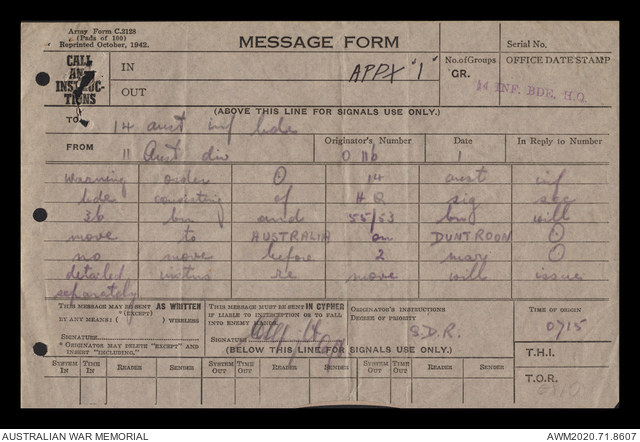 Army Form C.2128
(Pads of 100)
Reprinted October, 1942.
MESSAGE FORM
Serial No.
CALL AND INSTRUCTIONS
IN
OUT
APPX "1"
No. of Groups
GR.
OFFICE DATE STAMP
14 INF. BDE. H.Q.
(ABOVE THIS LINE FOR SIGNALS USE ONLY.)
TO 14 aust inf bde
FROM 11 Aust div
Originator's Number O 116
Date 1
In Reply to Number
warning order ⊙ 14 aust inf
bde consisting of HQ sig sec
36 bn and 55/53 bn will
move to AUSTRALIA on DUNTROON ⊙
no move before 2 may ⊙
detailed instns re move will issue
separately
THIS MESSAGE MAY BE SENT AS WRITTEN
(EXCEPT)
BY ANY MEANS ( ) WIRELESS
SIGNATURE
* ORIGINATOR MAY DELETE "EXCEPT" AND
INSERT "INCLUDING,"
THIS MESSAGE MUST BE SENT IN CYPHER
IF LIABLE TO INTERCEPTION OR TO FALL
INTO ENEMY HANDS.
SIGNATURE
ORIGINATOR'S INSTRUCTIONS
DEGREE OF PRIORITY
S.D.R.
TIME OF ORIGIN
0715
(BELOW THIS LINE FOR SIGNALS USE ONLY.)
T.H.I.
T.O.R.
SYSTEM IN TIME IN READER SENDER SYSTEM OUT TIME OUT READER SENDER SYSTEM OUT TIME OUT READER SENDER
AUSTRALIAN WAR MEMORIAL
AWM2020.71.8607